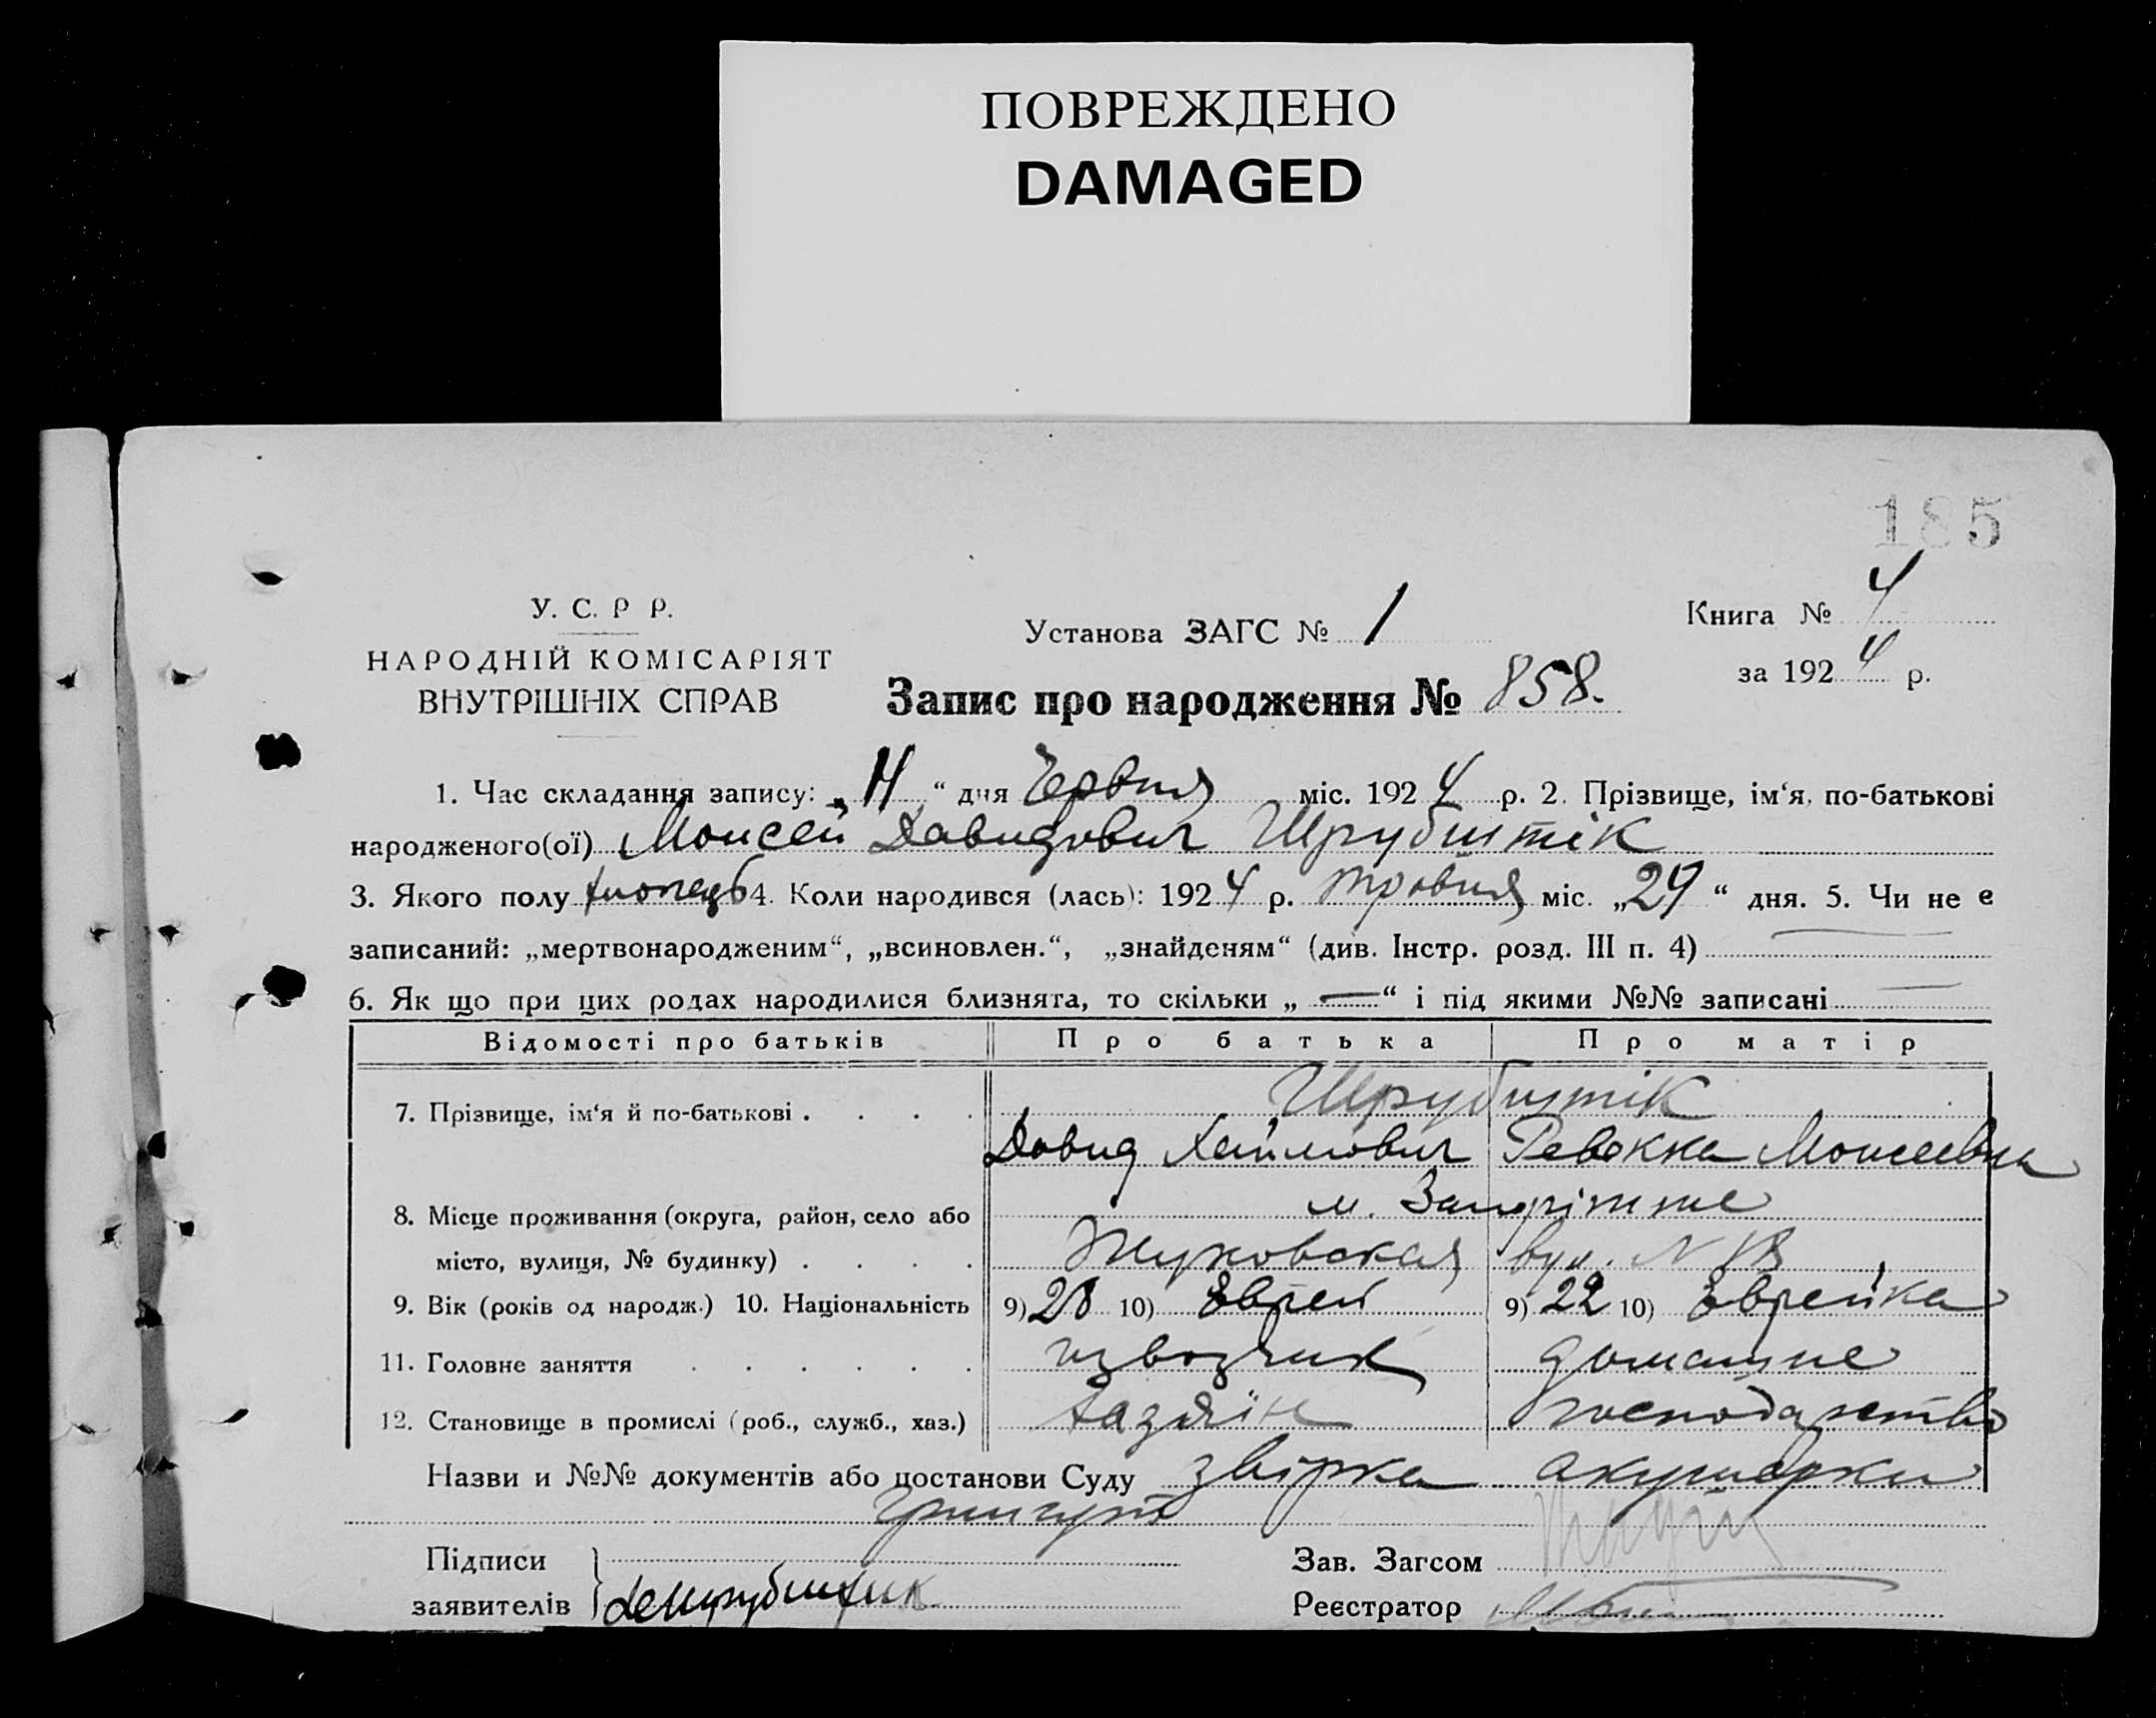 ПОВРЕЖДЕНО
DAMAGED
185
У. С. Р Р.
НАРОДНІЙ КОМІСАРІЯТ
ВНУТРІШНІХ СПРАВ
Установа ЗАГС № 1
Книга № 4
за 1924 р.
Запис про народження № 858.
1. Час складання запису: „ “ дня Червня міс. 1924 р. 2. Прізвище, ім‘я, по-батькові
народженого(ої) Моисей Давидович Шрубштік
3. Якого полу хлопець 4. Коли народився (лась): 1924 р. травня міс. „29“ дня. 5. Чи не є
записаний: „мертвонародженим“, „всиновлен.“, „знайденям“ (див. Інстр. розд. III п. 4) —
6. Як що при цих родах народилися близнята, то скільки „—“ і під якими №№ записані —
Відомості про батьків Про батька Про матір
7. Прізвище, ім‘я й по-батькові . . . . Шрубштік
Давид Хаимович Ревекка Моисеевна
8. Місце проживання (округа, район, село або м. Запоріжжє
місто, вулиця, № будинку) . . . . Жуковская вул. N 18
9. Вік (років од народж.) 10. Національність 9) 28 10) Еврей 9) 22 10) Еврейка
11. Головне заняття . . . . . . извозчик домашне
12. Становище в промислі (роб., служб., хаз.) хазяїн господарство
Назви и №№ документів або постанови Суду звірка акушерки
Підписи
заявителів Шрубштик
Зав. Загсом
Реєстратор